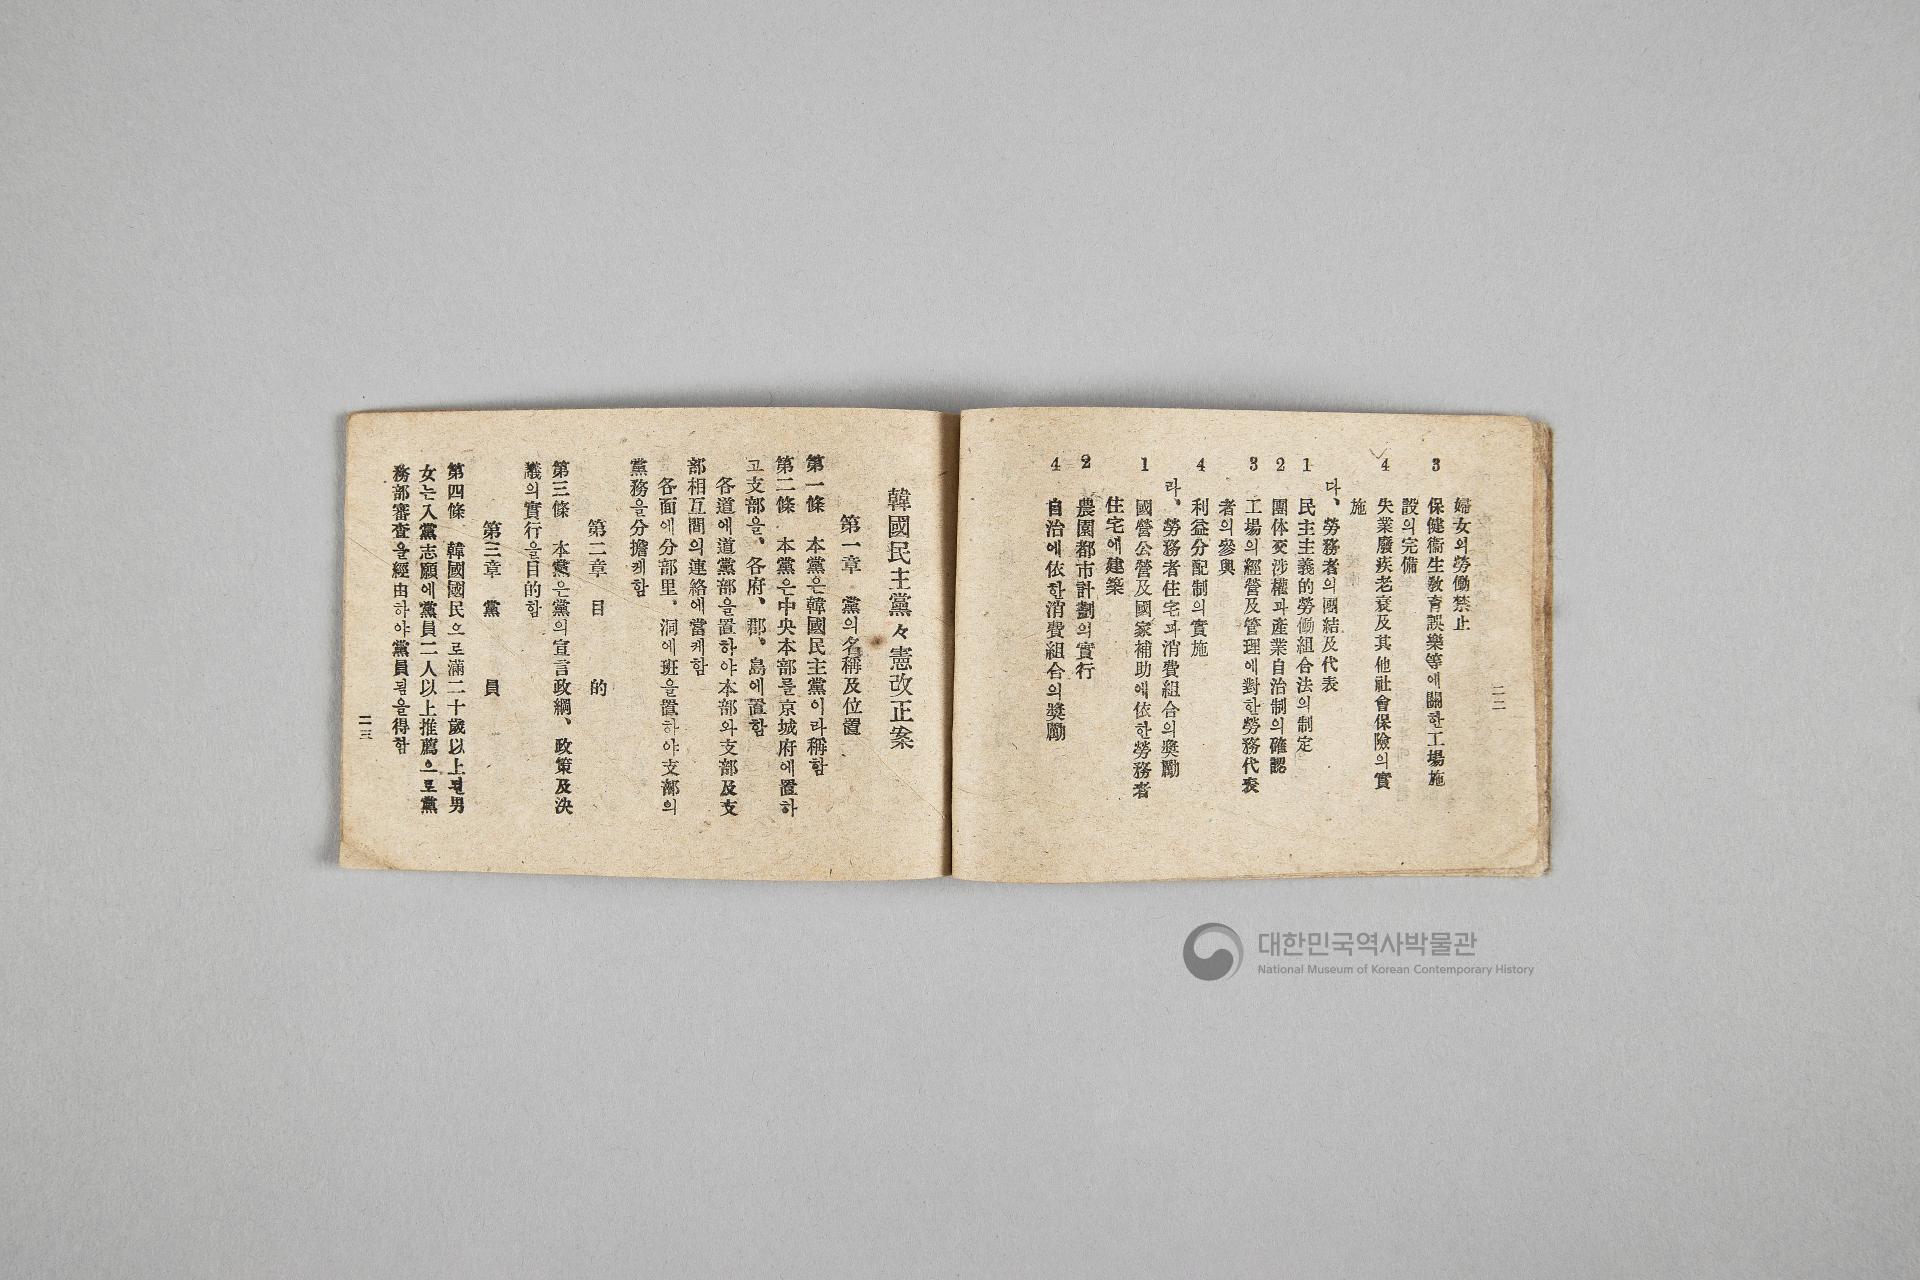 二二
婦女의勞働禁止
3 保健衞生敎育誤樂等에關한工場施
設의完備
4 失業廢疾老衰及其他社會保險의實
施
다、勞務者의團結及代表
1 民主主義的勞働組合法의制定
2 團体交涉權과產業自治制의確認
3 工場의經營及管理에對한勞務代表
者의參與
4 利益分配制의實施
라、勞務者住宅과消費組合의奬勵
1 國營公營及國家補助에依한勞務者
住宅에建築
2 農園都市計劃의實行
4 自治에依한消費組合의奬勵
韓國民主黨々憲改正案
第一章 黨의名稱及位置
第一條 本黨은韓國民主黨이라稱함
第二條 本黨은中央本部를京城府에置하
고支部을、各府、郡、島에置함
各道에道黨部을置하야本部와支部及支
部相互間의連絡에當케함
各面에分部里、洞에班을置하야支部의
黨務을分擔케함
第二章 目 的
第三條 本黨은黨의宣言政綱、政策及決
議의實行을目的함
第三章 黨 員
第四條 韓國國民으로滿二十歲以上된男
女는入黨志願에黨員二人以上推薦으로黨
務部審査을經由하야黨員됨을得함
二三
대한민국역사박물관
National Museum of Korean Contemporary History